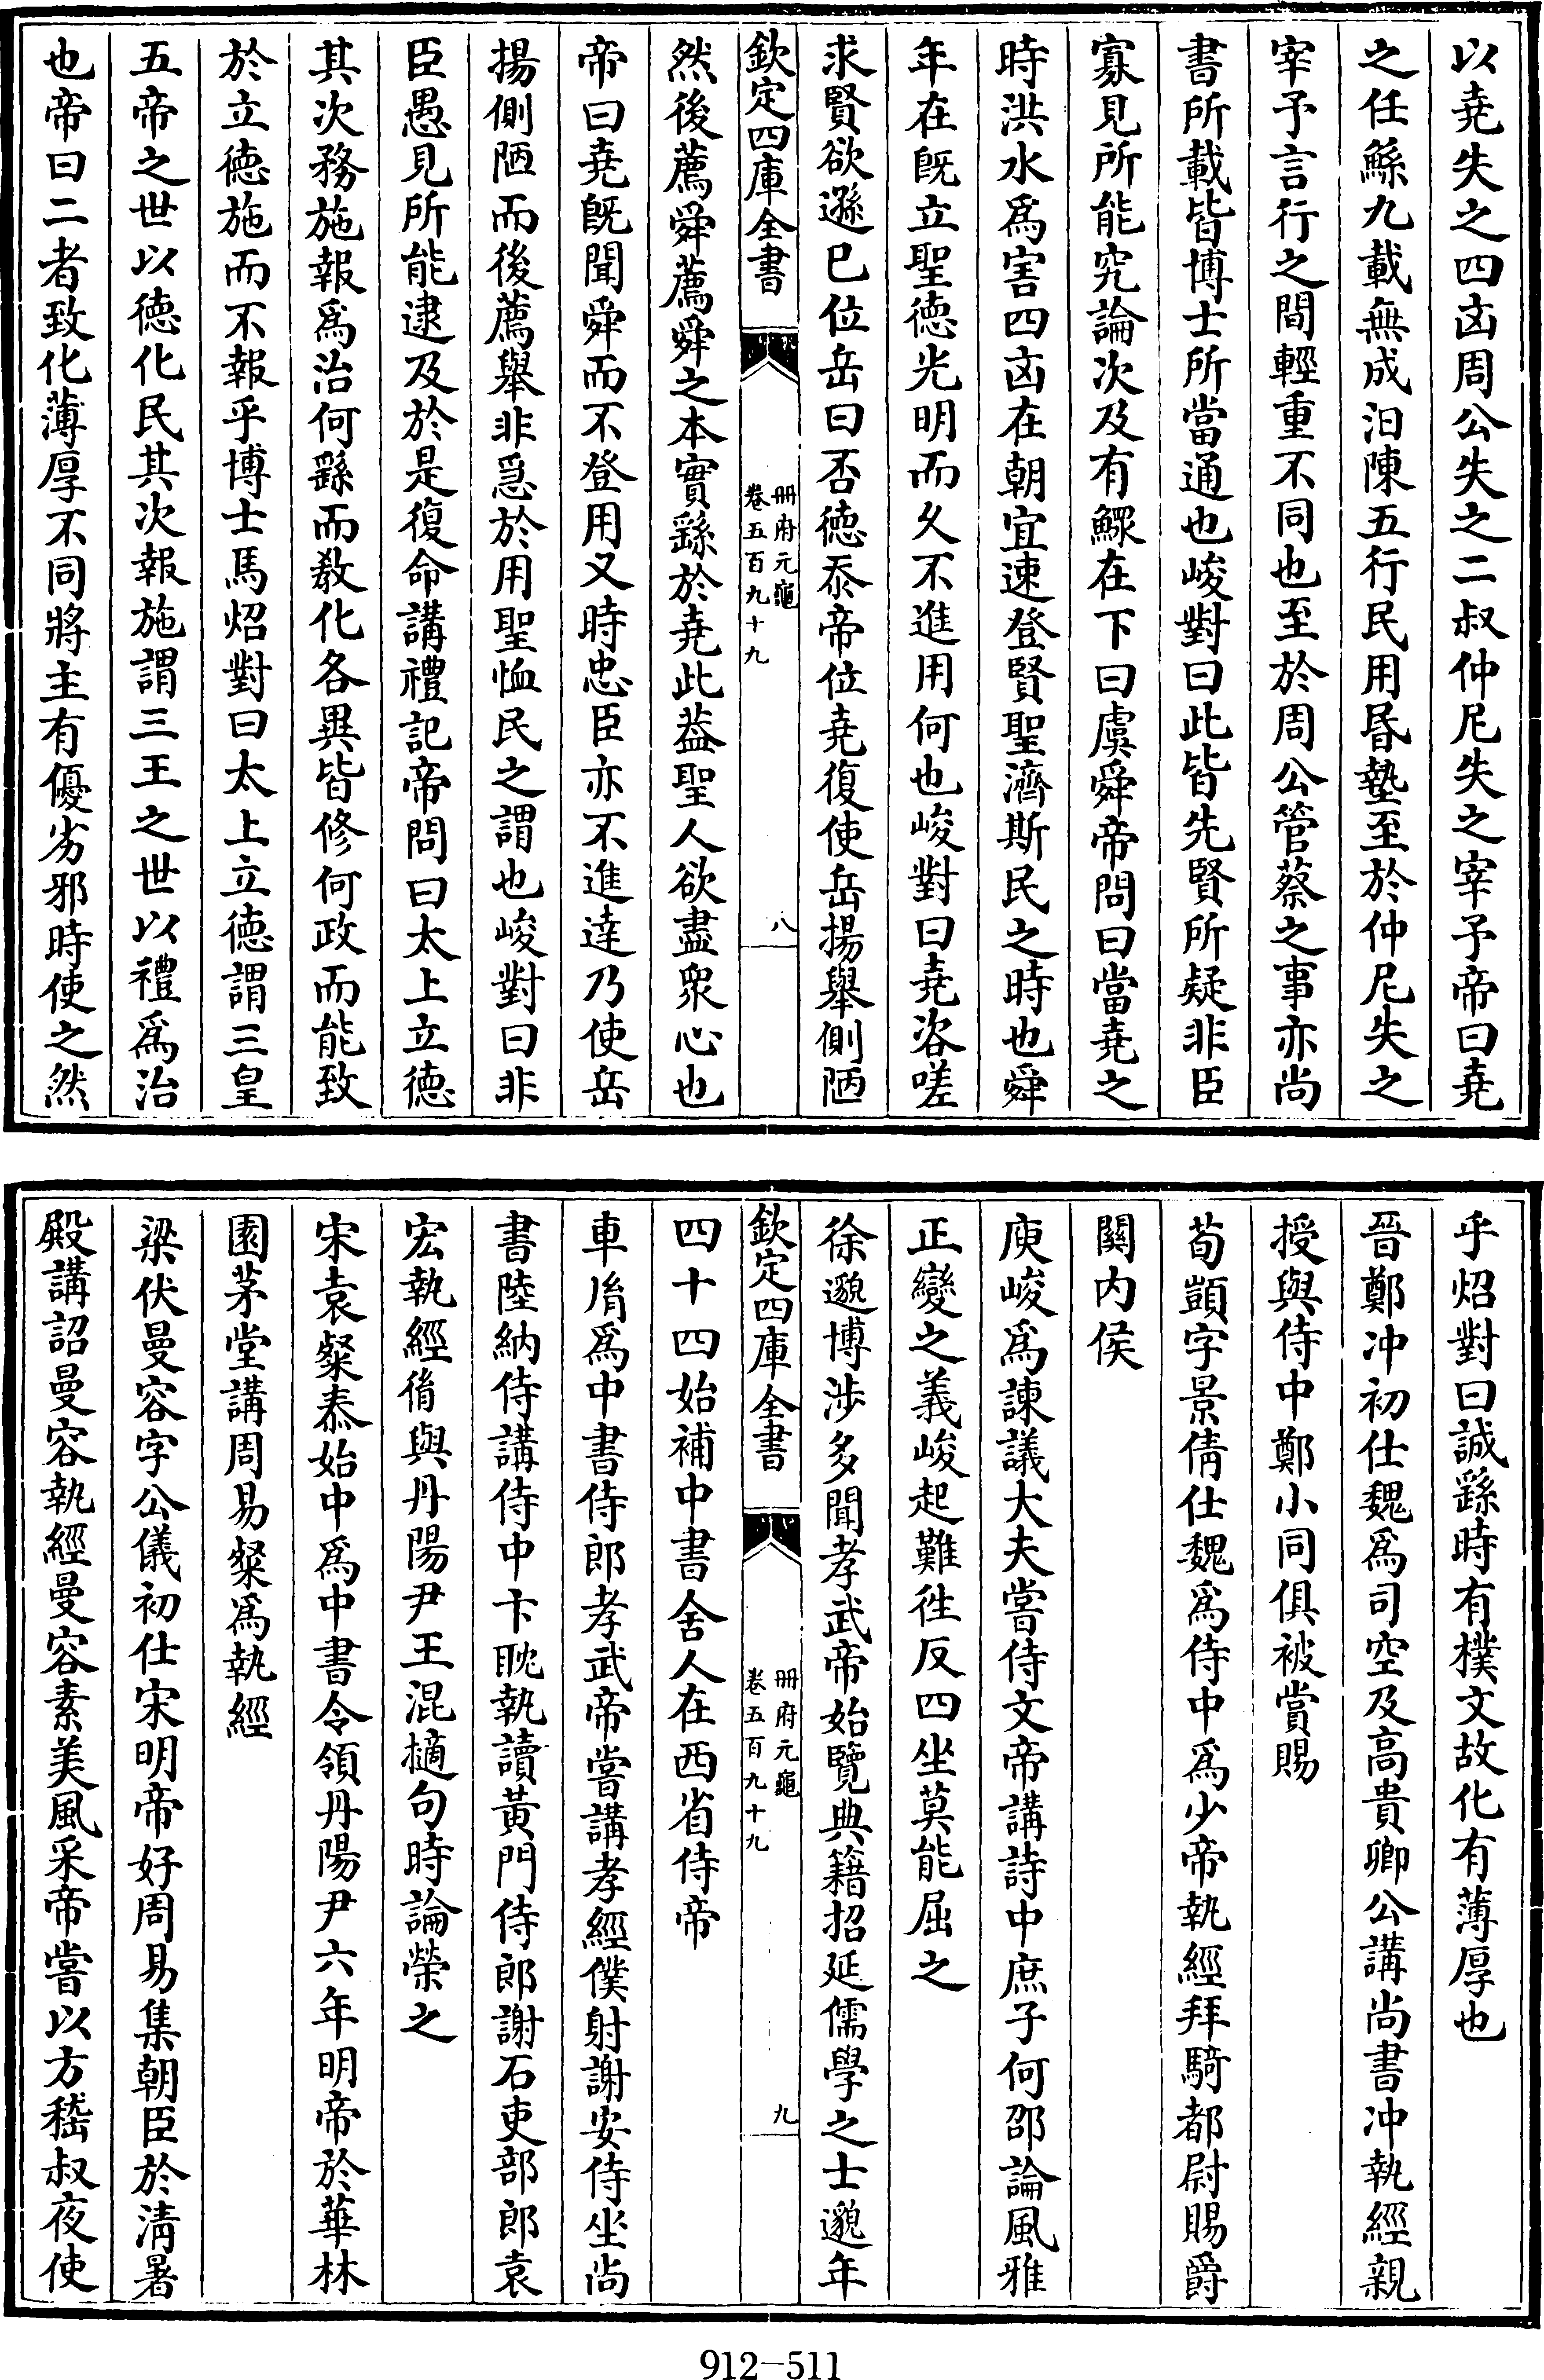 以堯失之四凶周公失之二叔仲尼失之宰予帝曰堯
之任鯀九載無成汩陳五行民用昬墊至於仲尼失之
宰予言行之間輕重不同也至於周公管蔡之事亦尚
書所載皆博士所當通也峻對曰此皆先賢所疑非臣
寡見所能究論次及有鰥在下曰虞舜帝問曰當堯之
時洪水為害四凶在朝宜速登賢聖濟斯民之時也舜
年在既立聖德光明而久不進用何也峻對曰堯咨嗟
求賢欲遜已位岳曰否德忝帝位堯復使岳揚舉側陋
欽定四庫全書
册府元龜
卷五百九十九
八
然後薦舜薦舜之本實繇於堯此葢聖人欲盡衆心也
帝曰堯既聞舜而不登用又時忠臣亦不進達乃使岳
揚側陋而後薦舉非急於用聖恤民之謂也峻對曰非
臣愚見所能逮及於是復命講禮記帝問曰太上立德
其次務施報為治何繇而教化各異皆修何政而能致
於立德施而不報乎博士馬炤對曰太上立德謂三皇
五帝之世以德化民其次報施謂三王之世以禮為治
也帝曰二者致化薄厚不同將主有優劣邪時使之然
乎炤對曰誠繇時有樸文故化有薄厚也
晉鄭冲初仕魏為司空及高貴卿公講尚書冲執經親
授與侍中鄭小同俱被賞賜
荀顗字景倩仕魏為侍中為少帝執經拜騎都尉賜爵
關内侯
庾峻為諫議大夫嘗侍文帝講詩中庶子何邵論風雅
正變之義峻起難徃反四坐莫能屈之
徐邈博涉多聞孝武帝始覽典籍招延儒學之士邈年
欽定四庫全書
册府元龜
卷五百九十九
九
四十四始補中書舍人在西省侍帝
車𦙍為中書侍郎孝武帝嘗講孝經僕射謝安侍坐尚
書陸納侍講侍中卞耽執讀黄門侍郎謝石吏部郎袁
宏執經𦙍與丹陽尹王混擿句時論榮之
宋袁粲泰始中為中書令領丹陽尹六年明帝於華林
園茅堂講周易粲為執經
梁伏曼容字公儀初仕宋明帝好周易集朝臣於清暑
殿講詔曼容執經曼容素美風采帝嘗以方嵇叔夜使
912-511